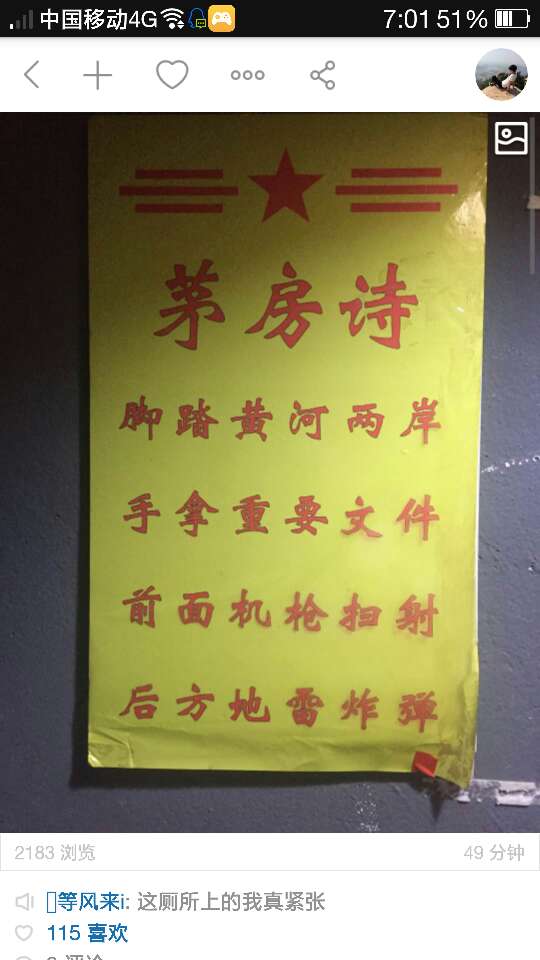 中国移动4G 7:01 51%
茅房诗
脚踏黄河两岸
手拿重要文件
前面机枪扫射
后方地雷炸弹
2183 浏览 49 分钟
等风来i: 这厕所上的我真紧张
115 喜欢